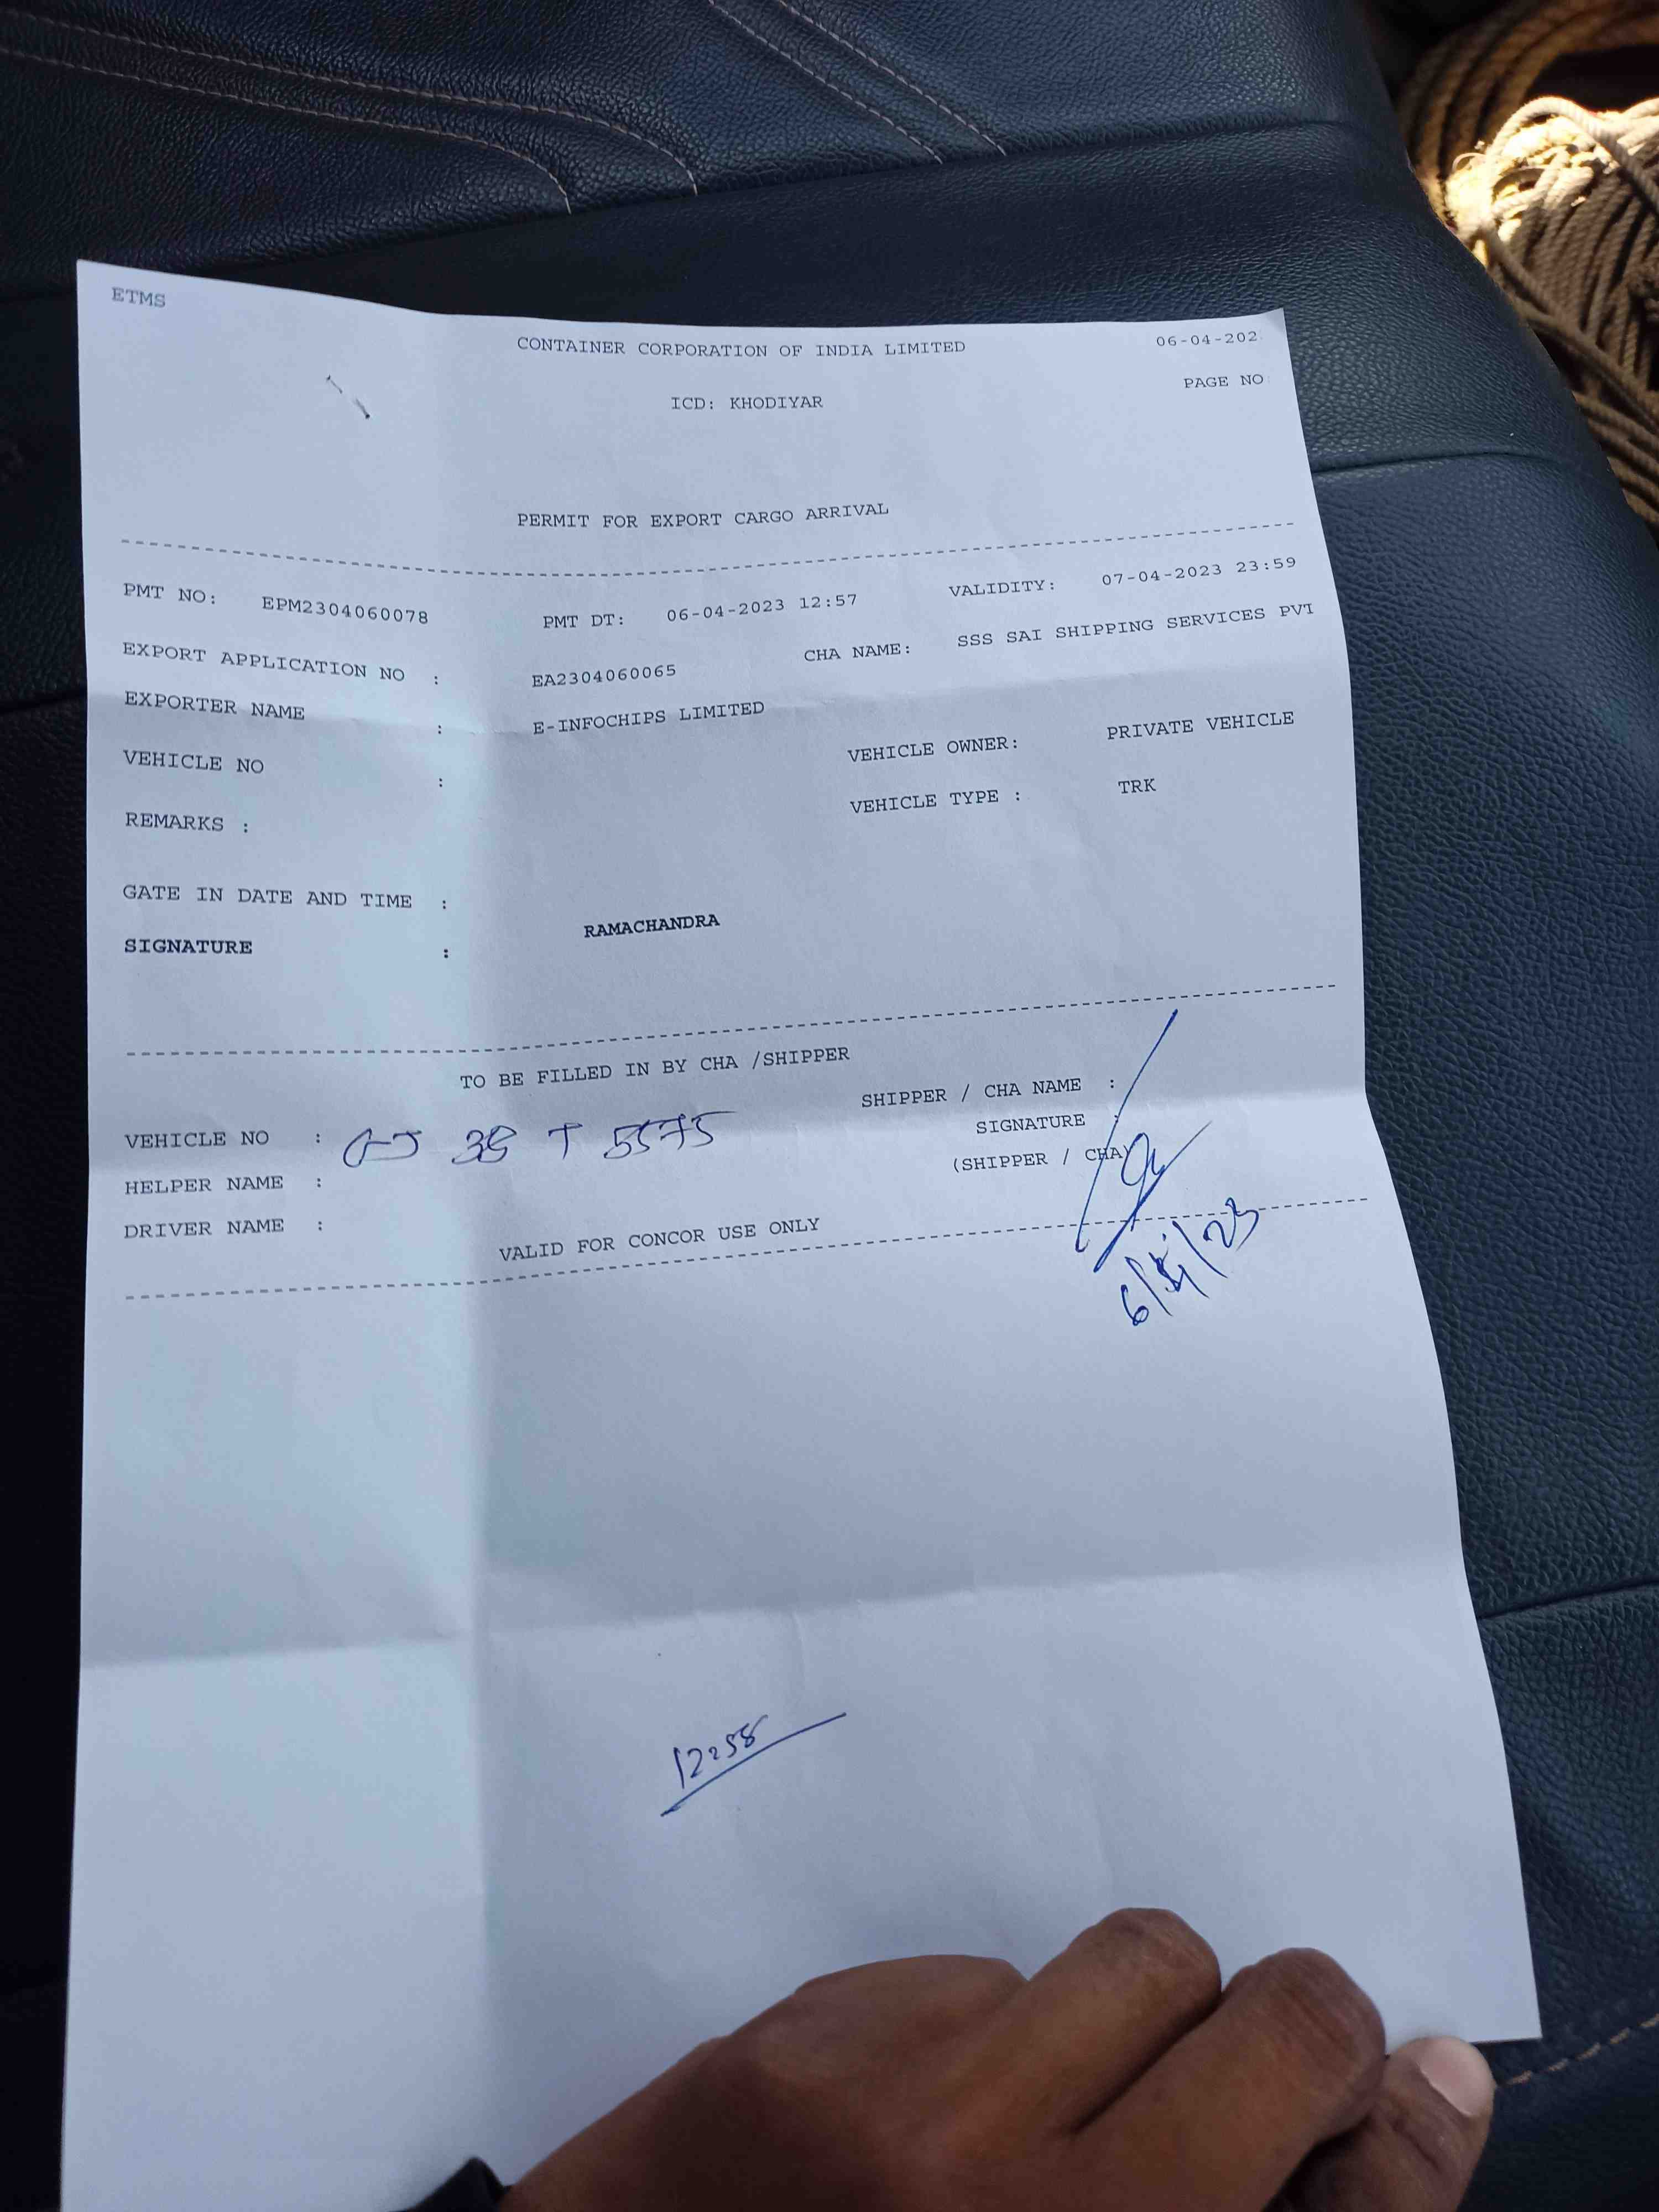 ETMS
CONTAINER CORPORATION OF INDIA LIMITED 06-04-202
PAGE NO
ICD: KHODIYAR
PERMIT FOR EXPORT CARGO ARRIVAL
PMT NO: EPM2304060078 PMT DT: 06-04-2023 12:57 VALIDITY: 07-04-2023 23:59
EXPORT APPLICATION NO : EA2304060065 CHA NAME: SSS SAI SHIPPING SERVICES PVT
EXPORTER NAME : E-INFOCHIPS LIMITED
VEHICLE NO : VEHICLE OWNER: PRIVATE VEHICLE
REMARKS : VEHICLE TYPE : TRK
GATE IN DATE AND TIME :
SIGNATURE : RAMACHANDRA
TO BE FILLED IN BY CHA /SHIPPER
SHIPPER / CHA NAME :
VEHICLE NO : GJ 38 T 5575 SIGNATURE :
HELPER NAME : (SHIPPER / CHA)
DRIVER NAME :
VALID FOR CONCOR USE ONLY
6/4/23
12:58